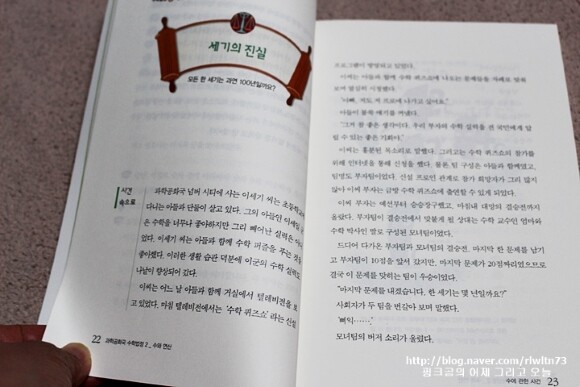 세기의 진실
모든 한 세기는 과연 100년일까요?
사건
속으로
과학공화국 넘버 시티에 사는 이세기 씨는 초등학교에
다니는 아들과 단둘이 살고 있다. 그의 아들인 이세일
은 수학을 너무나 좋아하지만 그리 빼어난 실력은 아니
었다. 이세기 씨는 아들과 함께 수학 퍼즐을 푸는 것을
좋아했다. 이러한 생활 습관 덕분에 이군의 수학 실력은
나날이 향상되어 갔다.
이씨는 어느 날 아들과 함께 거실에서 텔레비전을 보
고 있었다. 마침 텔레비전에서는 '수학 퀴즈쇼'라는 신설
22 과학공화국 수학법정 2 _ 수와 연산
프로그램이 방영되고 있었다.
이씨는 아들과 함께 수학 퀴즈쇼에 나오는 문제들을 차례로 맞춰
보며 열심히 시청했다.
"아빠, 저도 저 프로에 나가고 싶어요."
아들이 불쑥 얘기를 꺼냈다.
"그거 참 좋은 생각이다. 우리 부자의 수학 실력을 전 국민에게 알
릴 수 있는 좋은 기회야."
이씨는 흥분된 목소리로 말했다. 그리고는 수학 퀴즈쇼의 참가를
위해 인터넷을 통해 신청을 했다. 물론 팀 구성은 아들과 함께였고,
팀명도 부자팀이었다. 신설 프로인 관계로 참가 희망자가 그리 많지
않아 이씨 부자는 금방 수학 퀴즈쇼에 출연할 수 있게 되었다.
이씨 부자는 예선부터 승승장구했고, 마침내 대망의 결승전까지
올랐다. 부자팀이 결승전에서 맞붙게 될 상대는 수학 교수인 엄마와
수학 박사인 딸로 구성된 모녀팀이었다.
드디어 다가온 부자팀과 모녀팀의 결승전. 마지막 한 문제를 남기
고 부자팀이 10점을 앞서 갔지만, 마지막 문제가 20점짜리였으므로
결국 이 문제를 맞히는 팀이 우승이었다.
"마지막 문제를 내겠습니다. 한 세기는 몇 년일까요?"
사회자가 두 팀을 번갈아 보며 말했다.
"삐익……"
모녀팀의 버저 소리가 울렸다.
수에 관한 사건 23
http://blog.naver.com/rlwltn73
핑크공의 어제 그리고 오늘